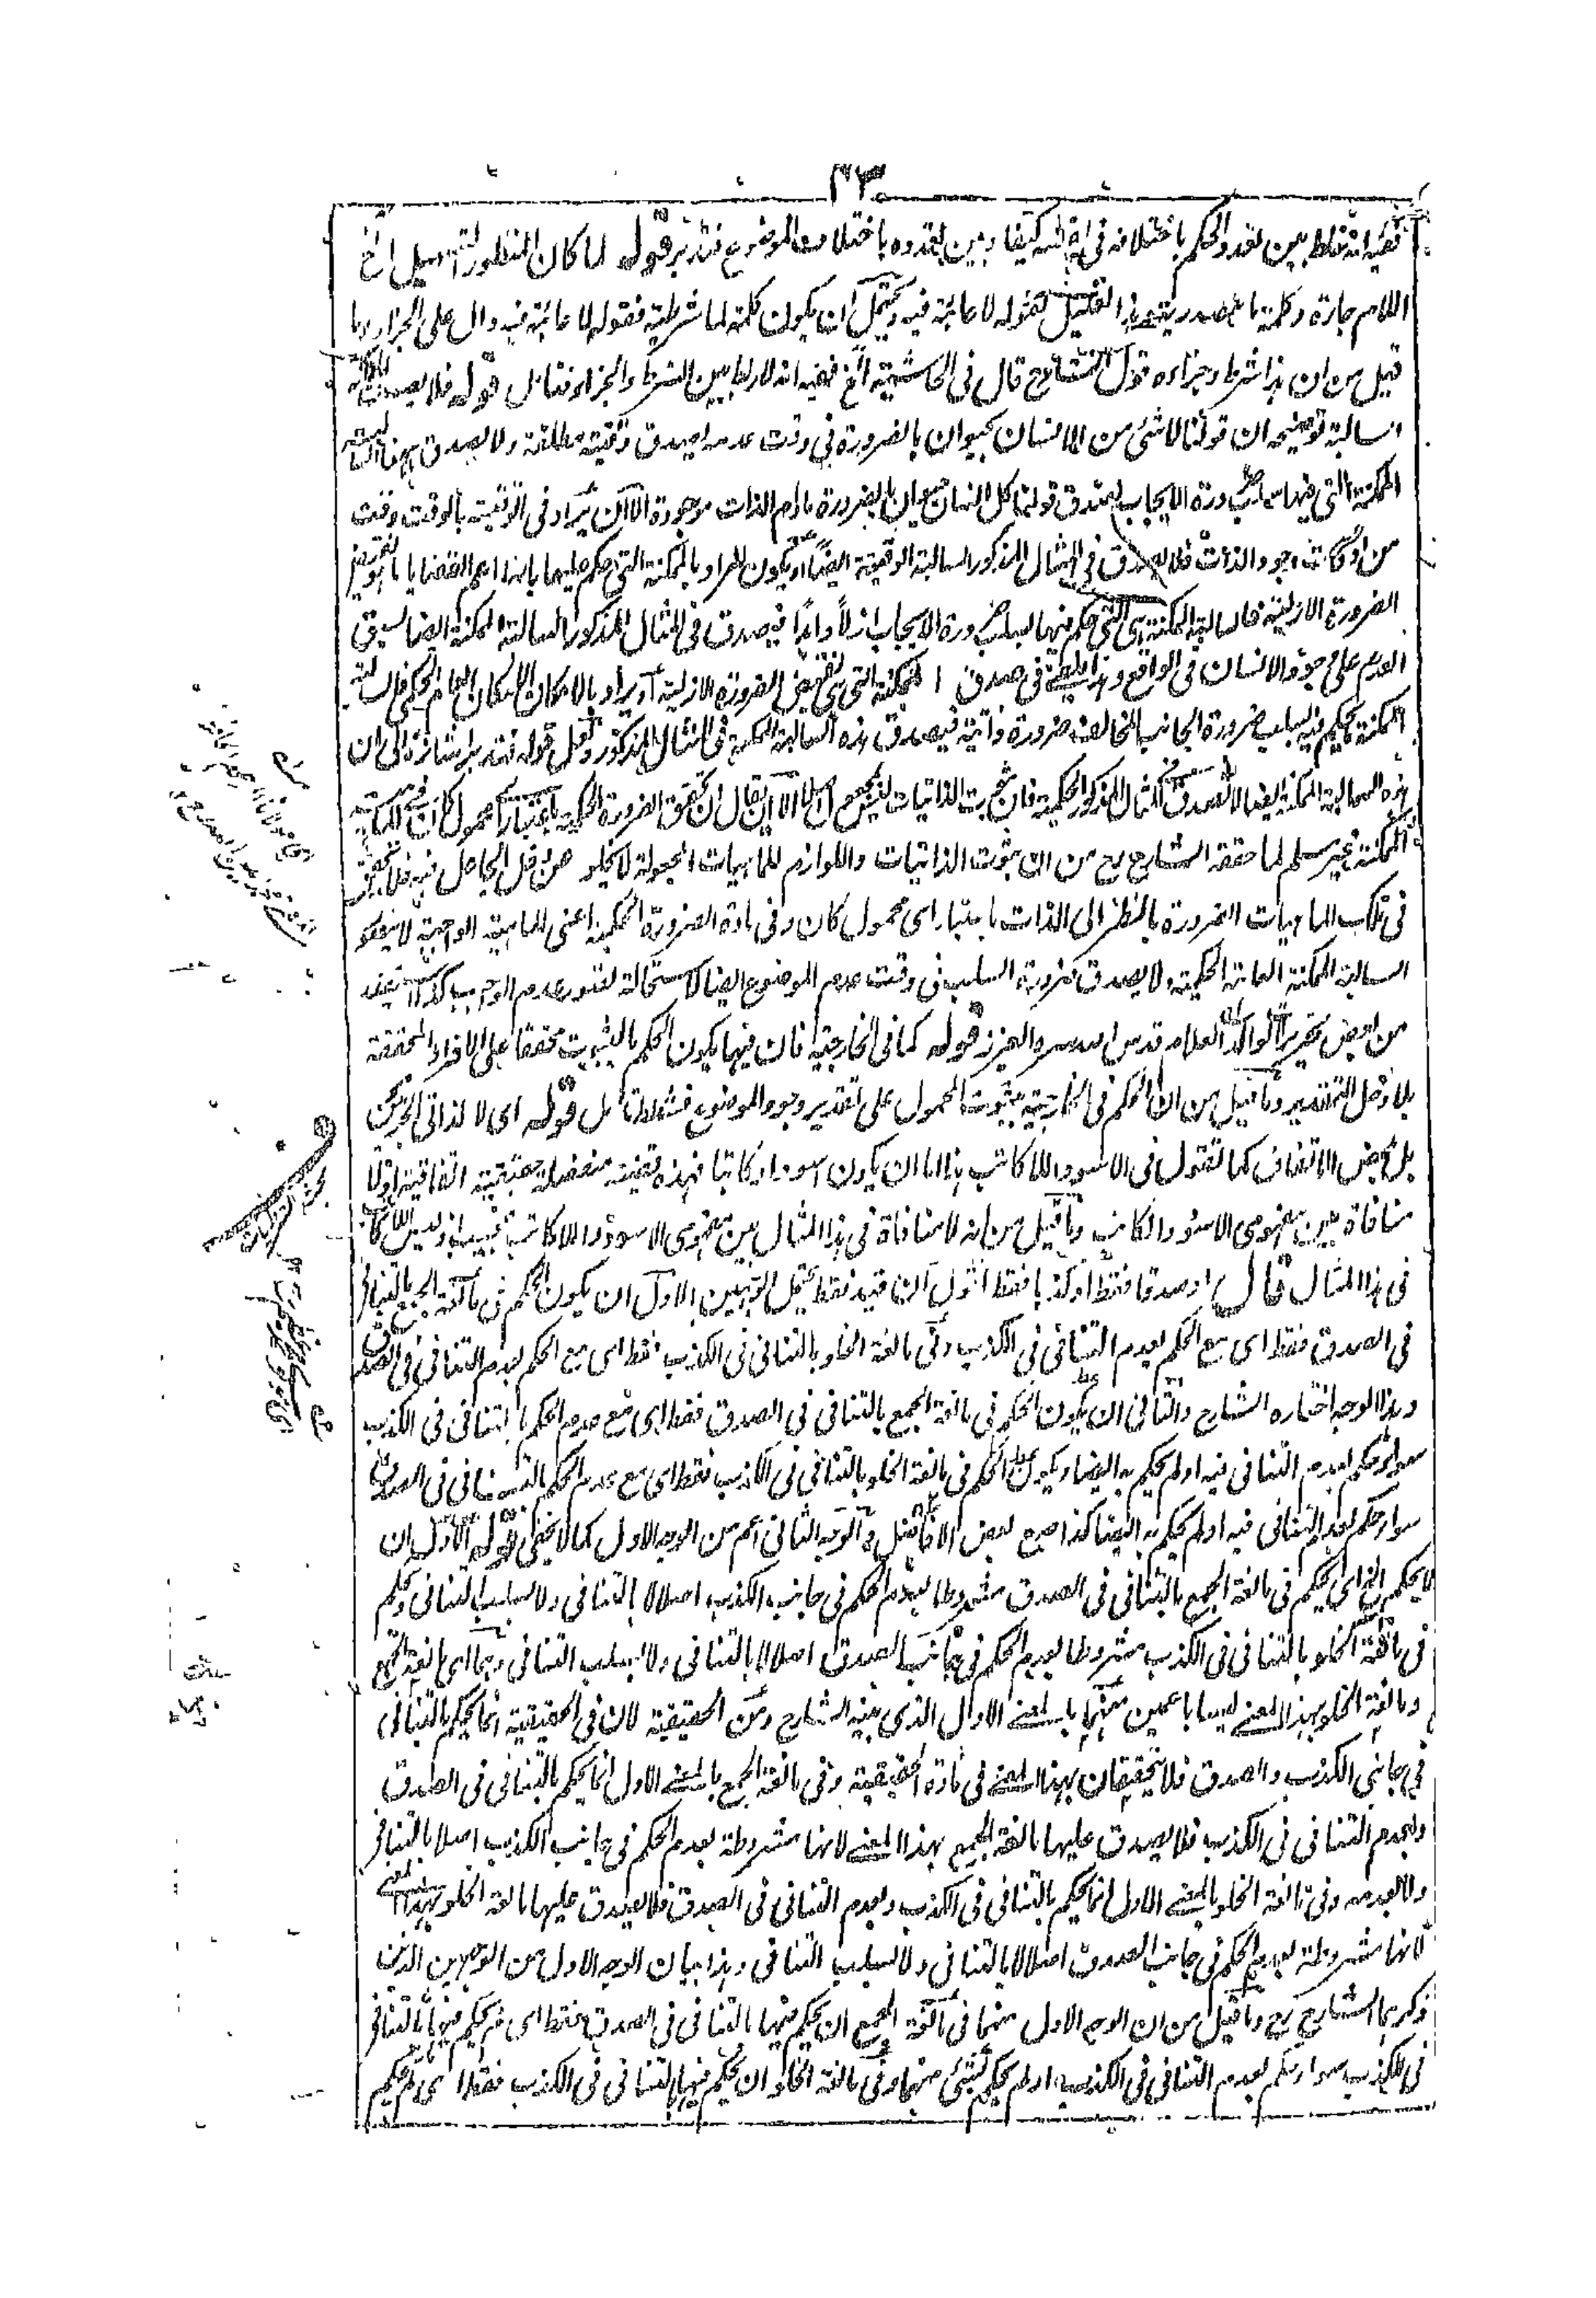 ٤٣
ففيه انه غلط بين تعدد الحكم باختلافه في نفسه كيفا وبين تعدده باختلاف الموضوع فتدبر قوله لما كان المنظور الخ
اللام جارة وكلمة ما مصدرية وهذا التعليل لقوله لا عائبة فيه ويحتمل ان يكون كلمة لما شرطية فقوله لا عائبة فيه دال على الجزاء وما
قيل من ان هذا شرط وجزاءه قول الشارح قال في الحاشية الخ ففيه انه لا ربط بين الشرط والجزاء فتأمل قوله فلا يصدق
السالبة توضيحه ان قولنا لا شئ من الانسان بحيوان بالضرورة في وقت عدمه يصدق وقتية مطلقة ولا يصدق ههنا السالبة
الممكنة التي فيها سلب ضرورة الايجاب لصدق قولنا كل انسان حيوان بالضرورة مادام الذات موجودة الا ان يراد في الوقتية بالوقت وقت
من اوقات وجود الذات فلا يصدق في المثال المذكور السالبة الوقتية ايضا او يكون المراد بالممكنة التي حكم عليها بانها اعم القضايا ما هو نقيض
الضرورة الازلية فالسالبة الممكنة هي التي حكم فيها بسلب ضرورة الايجاب ازلا وابدا فيصدق في المثال المذكور السالبة الممكنة ايضا لسبق
العدم على وجود الانسان في الواقع وهذا يكفي في صدق الممكنة التي هي نقيض الضرورة الازلية او يراد بالامكان الامكان العام الحكمي فالسالبة
الممكنة يحكم فيه بسلب ضرورة الجانب المخالف ضرورة ذاتية فيصدق هذه السالبة الممكنة في المثال المذكور ولعل قوله فتدبر اشارة الى ان
هذه السالبة الممكنة ايضا لا تصدق في المثال المذكور الحكمية فان ثبوت الذاتيات ليس بجعل اصلا الا ان يقال ان تحقق الضرورة الحكمية باعتبار اي محمول كان في الماهيات
الممكنة غير مسلم لما حققه الشارح رح من ان ثبوت الذاتيات واللوازم للماهيات المجعولة لا يخلو عن دخل الجاعل فيه فلا يتحقق
في تلك الماهيات الضرورة بالنظر الى الذات باعتبار اي محمول كان وفي مادة الضرورة الحكمية اعني الماهية الواجبة لا يصدق
السالبة الممكنة العامة الحكمية ولا يصدق ضرورة السلب في وقت عدم الموضوع ايضا لاستحالة تصور عدم الواجب كذا استفيد
من بعض تحرير الوالد العلامه قدس الله سره العزيز قوله كما في الخارجية فان فيها يكون الحكم بالثبوت محققا على الافراد المحققة
بلا دخل التقدير وما قيل من ان الحكم في الخارجية بثبوت المحمول على تقدير وجود الموضوع فشطط تأمل قوله اي لا لذاتي الجزئين
بل بمحض الاتفاق كما تقول في الاسود واللاكاتب هذا اما ان يكون اسود او كاتبا فهذه قضية منفصلة حقيقية اتفاقية اذ لا
منافاة بين مفهومي الاسود والكاتب وما قيل من انه لا منافاة في هذا المثال بين مفهومي الاسود واللاكاتب فعجيب اذ ليس اللاكاتب
في هذا المثال قال او صدقا فقط او كذبا فقط اقول ان قيد فقط يحتمل الوجهين الاول ان يكون الحكم في مانعة الجمع بالتنافي
في الصدق فقط اي مع الحكم بعدم التنافي في الكذب وفي مانعة الخلو بالتنافي في الكذب فقط اي مع الحكم بعدم التنافي في الصدق
وهذا الوجه اختاره الشارح والثاني ان يكون الحكم في مانعة الجمع بالتنافي في الصدق فقط اي مع عدم الحكم بالتنافي في الكذب
سواء حكم بعدم التنافي فيه او لم يحكم به ايضا ويكون الحكم في مانعة الخلو بالتنافي في الكذب فقط اي مع عدم الحكم بالتنافي في الصدق
سواء حكم بعدم التنافي فيه او لم يحكم به ايضا كذا صرح بعض الافاضل والوجه الثاني اعم من الوجه الاول كما لا يخفى قوله الاول ان
لا يحكم الخ اي يحكم في مانعة الجمع بالتنافي في الصدق مشروطا بعدم الحكم في جانب الكذب اصلا لا بالتنافي ولا بسلب التنافي ويحكم
في مانعة الخلو بالتنافي في الكذب مشروطا بعدم الحكم في جانب الصدق اصلا لا بالتنافي ولا بسلب التنافي وهما اي مانعة الجمع
ومانعة الخلو بهذا المعنى ليسا باعمين منهما بالمعنى الاول الذي بينه الشارح ومن الحقيقية لان في الحقيقية انما يحكم بالتنافي
في جانبي الكذب والصدق فلا يتحققان بهذا المعنى في مادة الحقيقية وفي مانعة الجمع بالمعنى الاول انما يحكم بالتنافي في الصدق
وبعدم التنافي في الكذب فلا يصدق عليها مانعة الجمع بهذا المعنى لانها مشروطة بعدم الحكم في جانب الكذب اصلا بالتنافي
ولا بعدمه وفي مانعة الخلو بالمعنى الاول انما يحكم بالتنافي في الكذب وبعدم التنافي في الصدق فلا يصدق عليها مانعة الخلو بهذا المعنى
لانها مشروطة بعدم الحكم في جانب الصدق اصلا لا بالتنافي ولا بسلب التنافي وهذا بيان الوجه الاول من الوجهين الذين
ذكرهما الشارح رح وما قيل من ان الوجه الاول منهما في مانعة الجمع ان يحكم فيها بالتنافي في الصدق فقط اي لم يحكم فيها بالتنافي
في الكذب سواء حكم بعدم التنافي في الكذب او لم يحكم بشئ منهما وفي مانعة الخلو ان يحكم فيها بالتنافي في الكذب فقط اي لم يحكم